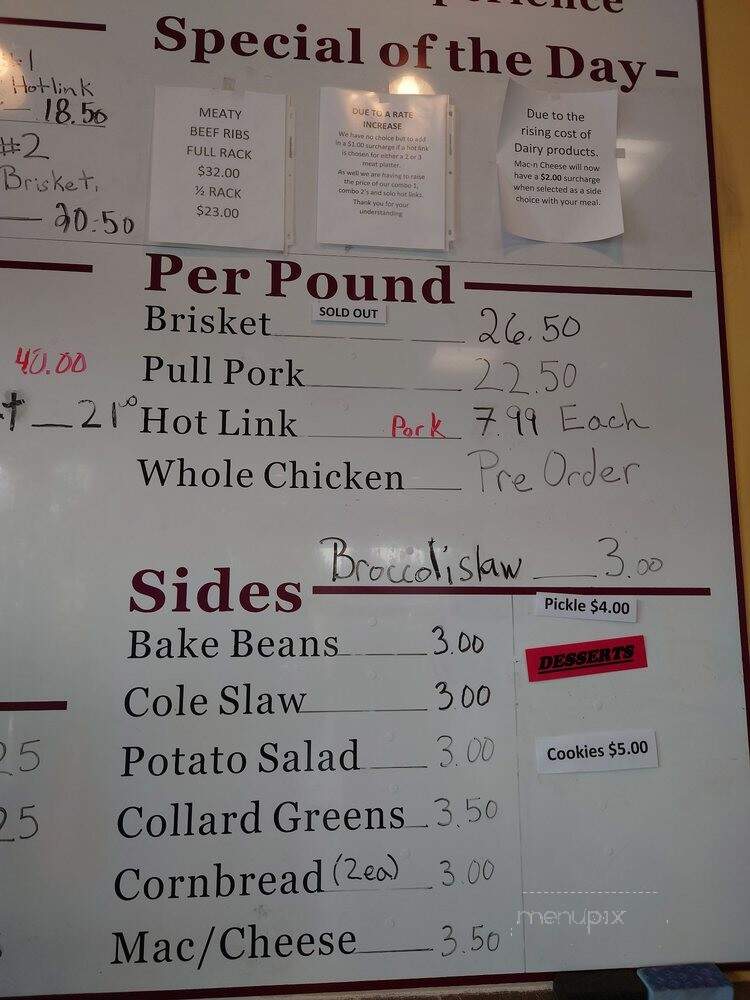 Special of the Day
Hotlink
18.50
#2
Brisket,
20.50
MEATY
BEEF RIBS
FULL RACK
$32.00
½ RACK
$23.00
DUE TO A RATE
INCREASE
We have no choice but to add
in a $1.00 surcharge if a hot link
is chosen for either a 2 or 3
meat platter.
As well we are having to raise
the price of our combo 1,
combo 2's and solo hot links.
Thank you for your
understanding
Due to the
rising cost of
Dairy products.
Mac-n Cheese will now
have a $2.00 surcharge
when selected as a side
choice with your meal.
40.00
21
Per Pound
Brisket SOLD OUT 26.50
Pull Pork 22.50
Hot Link Pork 7.99 Each
Whole Chicken Pre Order
Broccolislaw 3.00
Sides
Bake Beans 3.00
Cole Slaw 3.00
Potato Salad 3.00
Collard Greens 3.50
Cornbread (2ea) 3.00
Mac/Cheese 3.50
Pickle $4.00
DESSERTS
Cookies $5.00
25
25
menupix